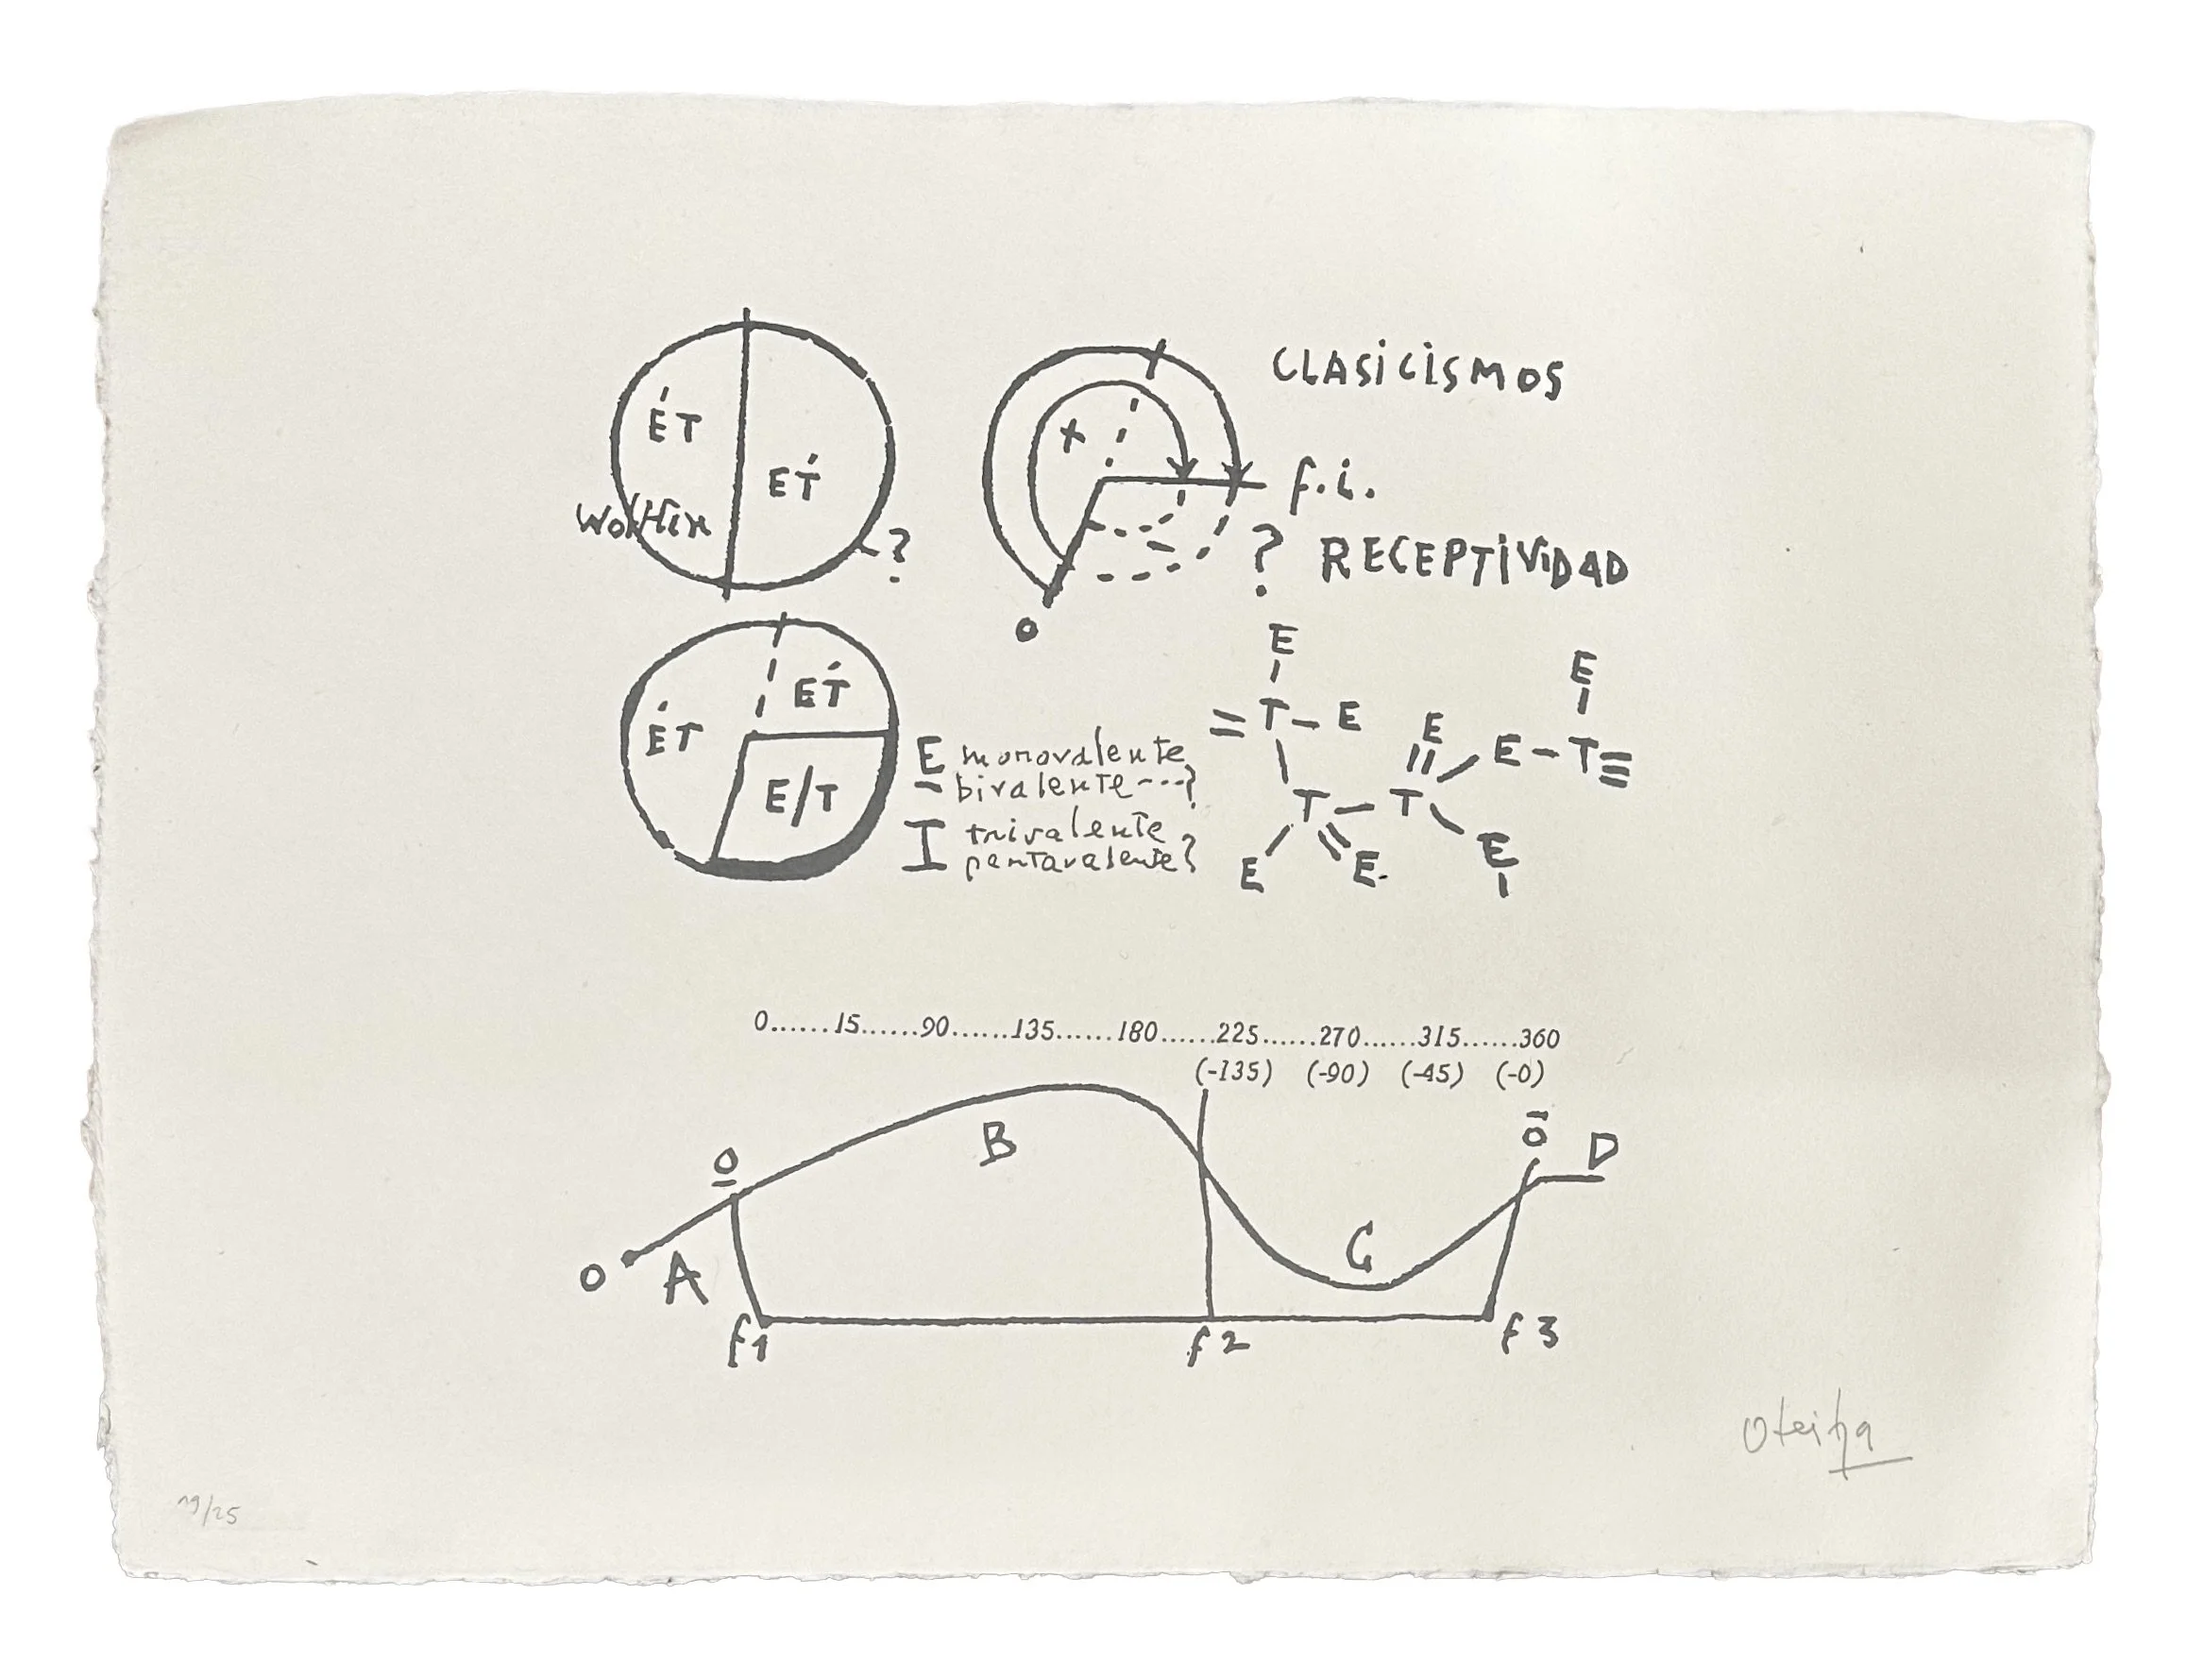 ÉT
ET́
Wölflin
?
CLASICISMOS
+
f.i.
? RECEPTIVIDAD
O
ÉT
ET́
E/T
E monovalente
bivalente ---?
T trivalente
pentavalente?
E
= T - E
E
E
E - T ≡
T - T
E
E
E
0......15......90......135......180......225......270......315......360
(-135) (-90) (-45) (-0)
O A
O
B
C
O
D
f1
f2
f3
Oteiza
19/25